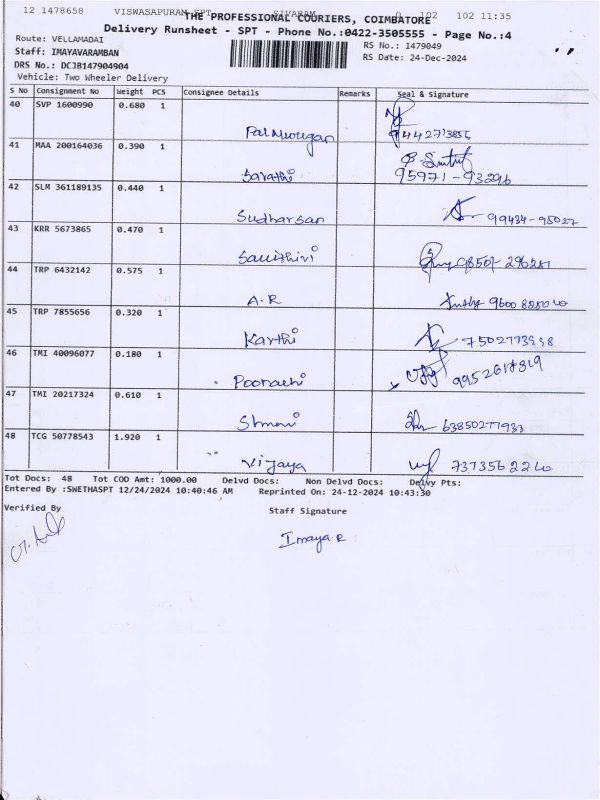 12 1478658 VISWASAPURAM SPT SIVARAM 0 102 102 11:35
THE PROFESSIONAL COURIERS, COIMBATORE
Delivery Runsheet - SPT - Phone No.:0422-3505555 - Page No.:4
Route: VELLAMADAI RS No.: 1479049
Staff: IMAYAVARAMBAN RS Date: 24-Dec-2024
DRS No.: DCJB147904904
Vehicle: Two Wheeler Delivery
S No Consignment No Weight PCS Consignee Details Remarks Seal & Signature
40 SVP 1600990 0.680 1
Palmurugan 9442713856
41 MAA 200164036 0.390 1
Sarathi 95971-93296
42 SLM 361189135 0.440 1
Sudharsan 99434-98027
43 KRR 5673865 0.470 1
Savithiri
44 TRP 6432142 0.575 1
A.R
45 TRP 7855656 0.320 1
Karthi
46 TMI 40096077 0.180 1
Poorachi
47 TMI 20217324 0.610 1
63850277933
48 TCG 50778543 1.920 1
Vijaya
Tot Docs: 48 Tot COD Amt: 1000.00 Delvd Docs: Non Delvd Docs: Delvy Pts:
Entered By :SWETHASPT 12/24/2024 10:40:46 AM Reprinted On: 24-12-2024 10:43:30
Verified By Staff Signature
Imaya R